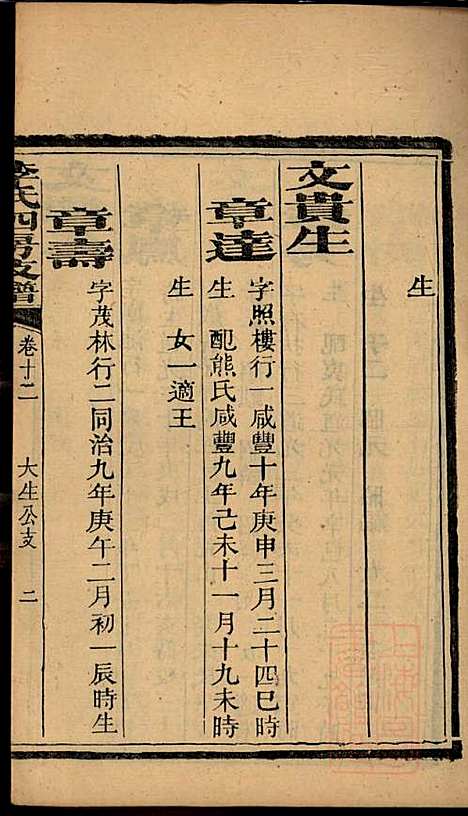 生
文貴生
章達
字照樓行一咸豐十年庚申三月二十四巳時
生　配熊氏咸豐九年己未十一月十九未時
生　女一適王
章壽
字茂林行二同治九年庚午二月初一辰時生
氏四房支譜
卷十二
大生公支
二